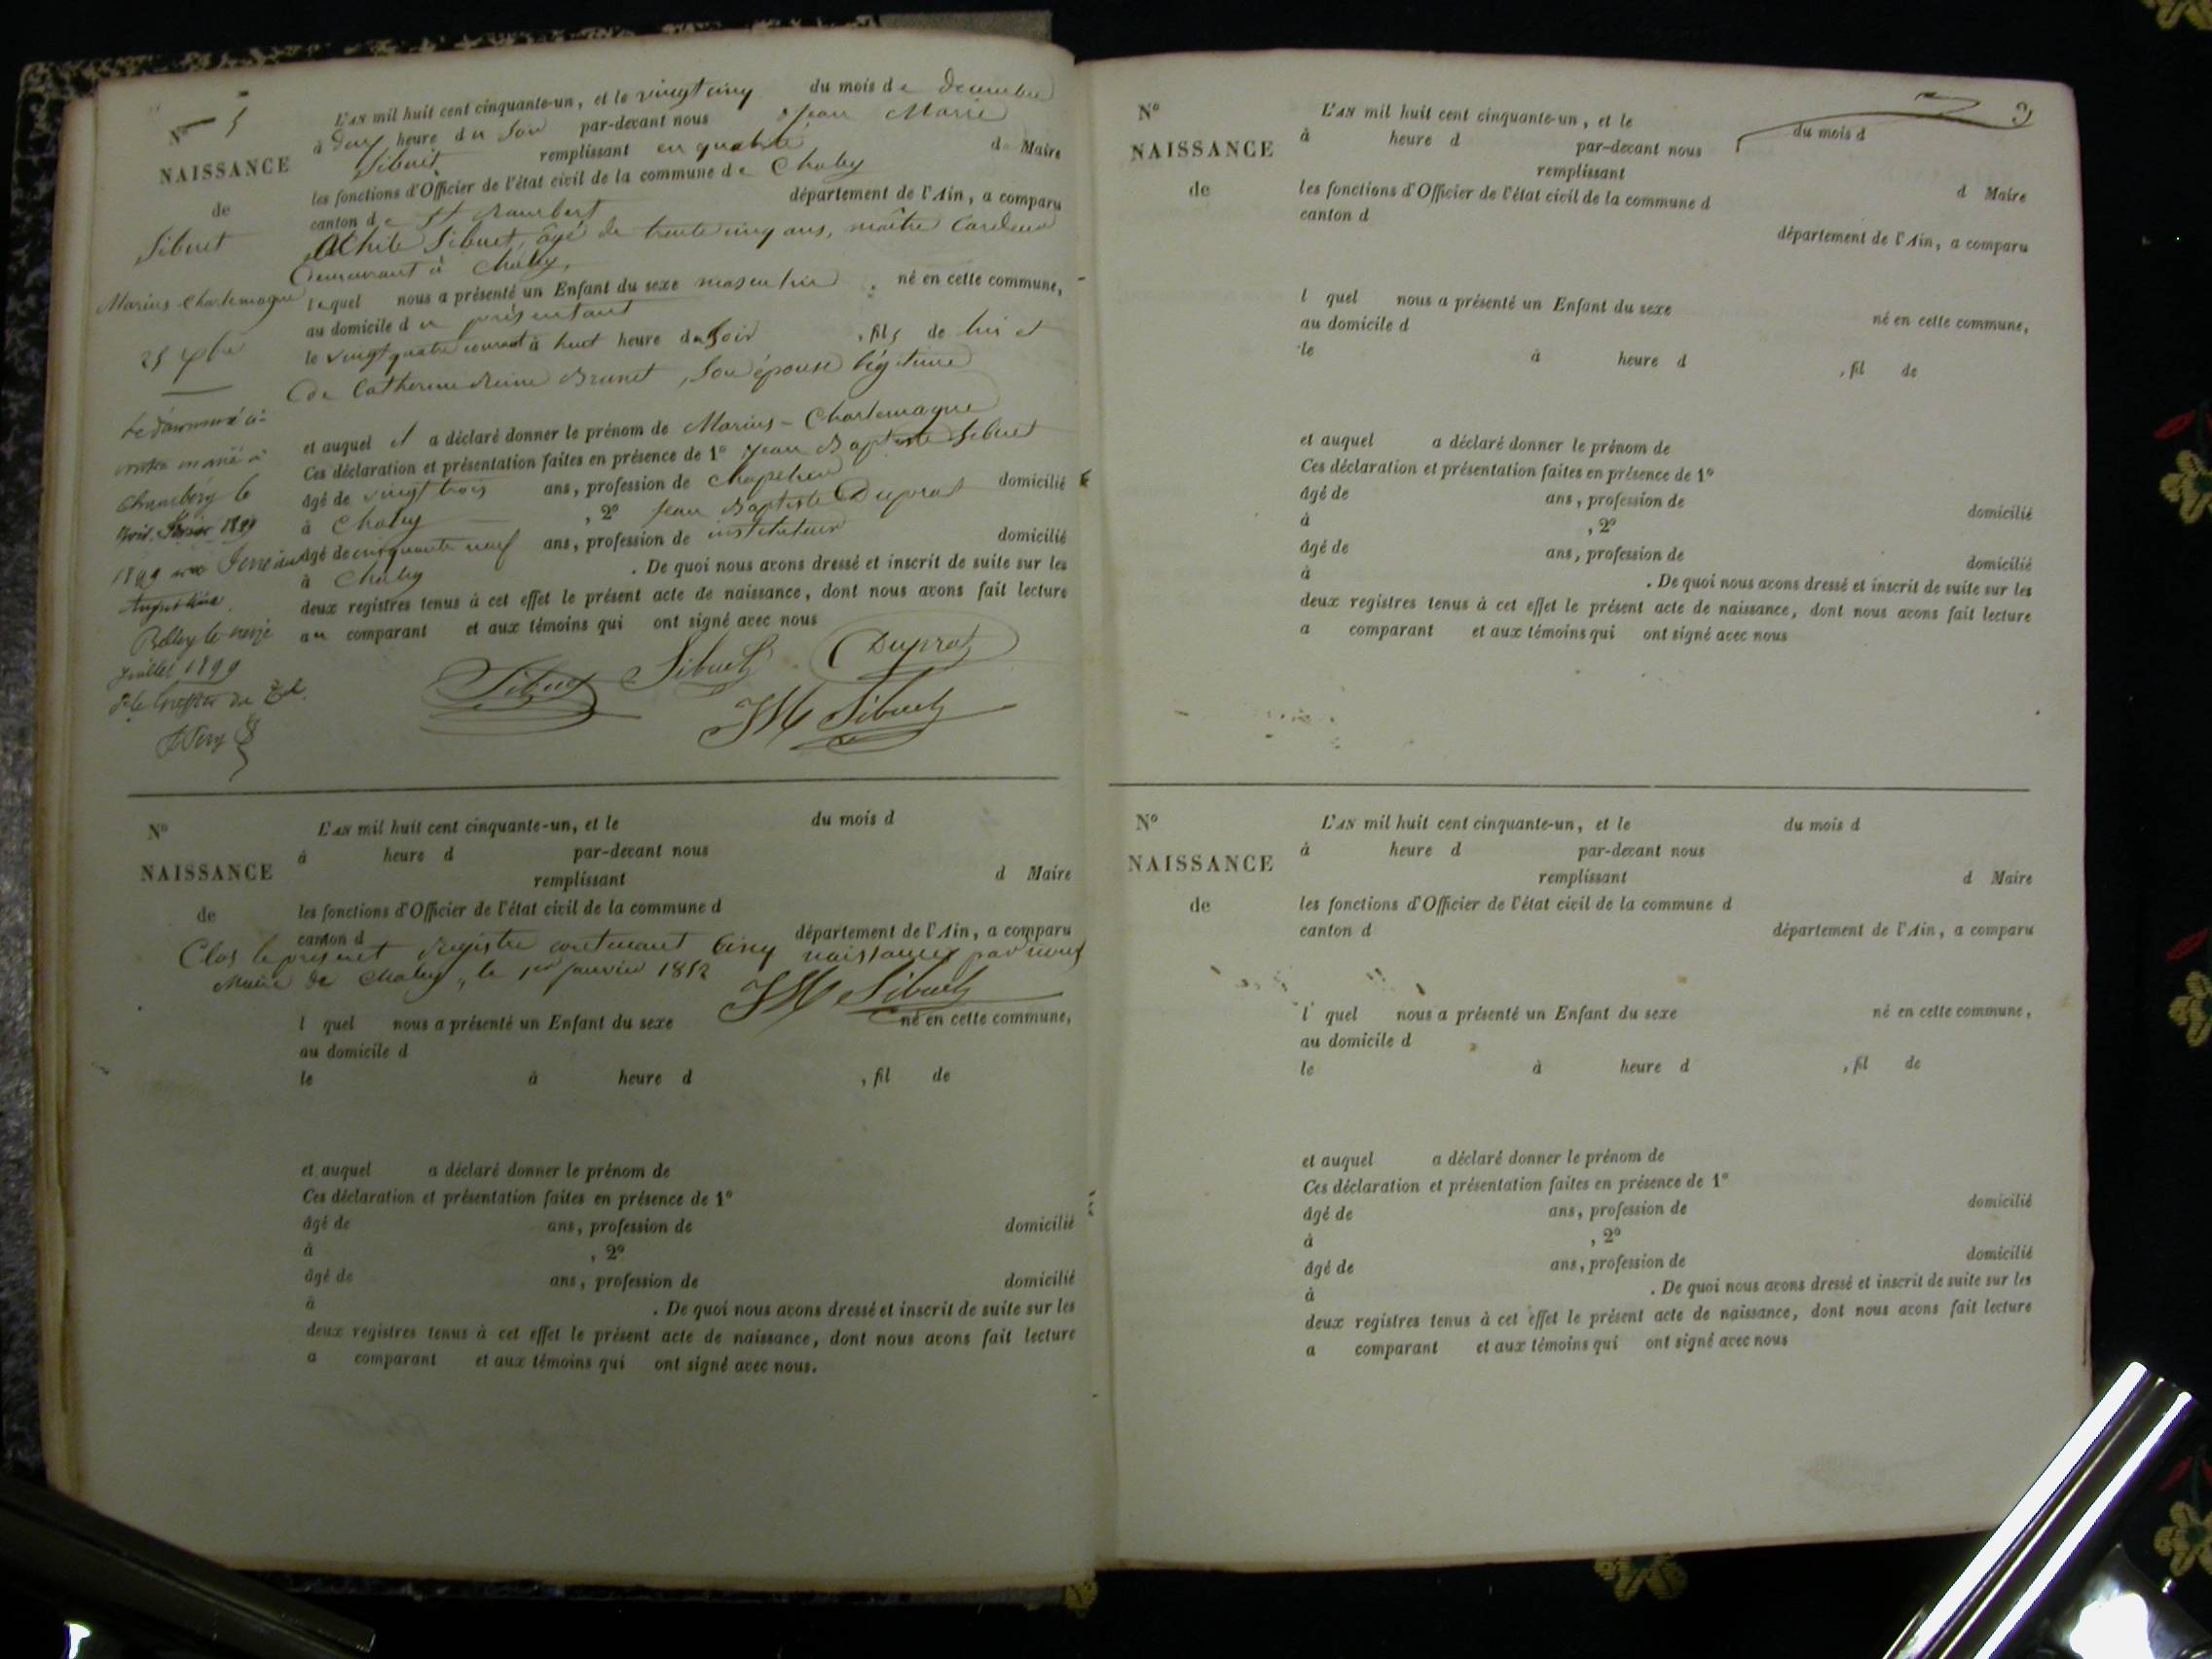 N° 5
NAISSANCE
de
Sibuet
Marius Charlemagne
25 Xbre
Le dénommé ci-
contre marié à
Chambéry le
1899
Augustine
Belley le
juillet 1899
P. le Greffier
L'AN mil huit cent cinquante-un, et le vingt cinq du mois de décembre
à deux heure du soir par-devant nous Jean Marie
Sibuet remplissant en qualité d Maire
les fonctions d'Officier de l'état civil de la commune de Chaley
canton de St Rambert département de l'Ain, a comparu
Achile Sibuet, âgé de trente cinq ans, maître cardeur
demeurant à Chaley,
lequel nous a présenté un Enfant du sexe masculin né en cette commune,
au domicile du présentant
le vingt quatre courant à huit heure du soir, fils de lui et
de Catherine Reine Brunet, son épouse légitime
et auquel il a déclaré donner le prénom de Marius-Charlemagne
Ces déclaration et présentation faites en présence de 1° Jean Baptiste Sibuet
âgé de vingt trois ans, profession de chapelier domicilié
à Chaley, 2° Jean Baptiste Duprat
âgé de cinquante neuf ans, profession de instituteur domicilié
à Chaley. De quoi nous avons dressé et inscrit de suite sur les
deux registres tenus à cet effet le présent acte de naissance, dont nous avons fait lecture
au comparant et aux témoins qui ont signé avec nous
Sibuet Sibuet Duprat
JM Sibuet
N°
NAISSANCE
de
L'AN mil huit cent cinquante-un, et le du mois d
à heure d par-devant nous
remplissant d Maire
les fonctions d'Officier de l'état civil de la commune d
canton d département de l'Ain, a comparu
Clos le présent registre contenant cinq naissances par nous
Maire de Chaley, le 1er janvier 1852
JM Sibuet
l quel nous a présenté un Enfant du sexe né en cette commune,
au domicile d
le à heure d , fil de
et auquel a déclaré donner le prénom de
Ces déclaration et présentation faites en présence de 1°
âgé de ans, profession de domicilié
à , 2°
âgé de ans, profession de domicilié
à . De quoi nous avons dressé et inscrit de suite sur les
deux registres tenus à cet effet le présent acte de naissance, dont nous avons fait lecture
a comparant et aux témoins qui ont signé avec nous.
3
N°
NAISSANCE
de
L'AN mil huit cent cinquante-un, et le du mois d
à heure d par-devant nous
remplissant d Maire
les fonctions d'Officier de l'état civil de la commune d
canton d département de l'Ain, a comparu
l quel nous a présenté un Enfant du sexe né en cette commune,
au domicile d
le à heure d , fil de
et auquel a déclaré donner le prénom de
Ces déclaration et présentation faites en présence de 1°
âgé de ans, profession de domicilié
à , 2°
âgé de ans, profession de domicilié
à . De quoi nous avons dressé et inscrit de suite sur les
deux registres tenus à cet effet le présent acte de naissance, dont nous avons fait lecture
a comparant et aux témoins qui ont signé avec nous
N°
NAISSANCE
de
L'AN mil huit cent cinquante-un, et le du mois d
à heure d par-devant nous
remplissant d Maire
les fonctions d'Officier de l'état civil de la commune d
canton d département de l'Ain, a comparu
l quel nous a présenté un Enfant du sexe né en cette commune,
au domicile d
le à heure d , fil de
et auquel a déclaré donner le prénom de
Ces déclaration et présentation faites en présence de 1°
âgé de ans, profession de domicilié
à , 2°
âgé de ans, profession de domicilié
à . De quoi nous avons dressé et inscrit de suite sur les
deux registres tenus à cet effet le présent acte de naissance, dont nous avons fait lecture
a comparant et aux témoins qui ont signé avec nous